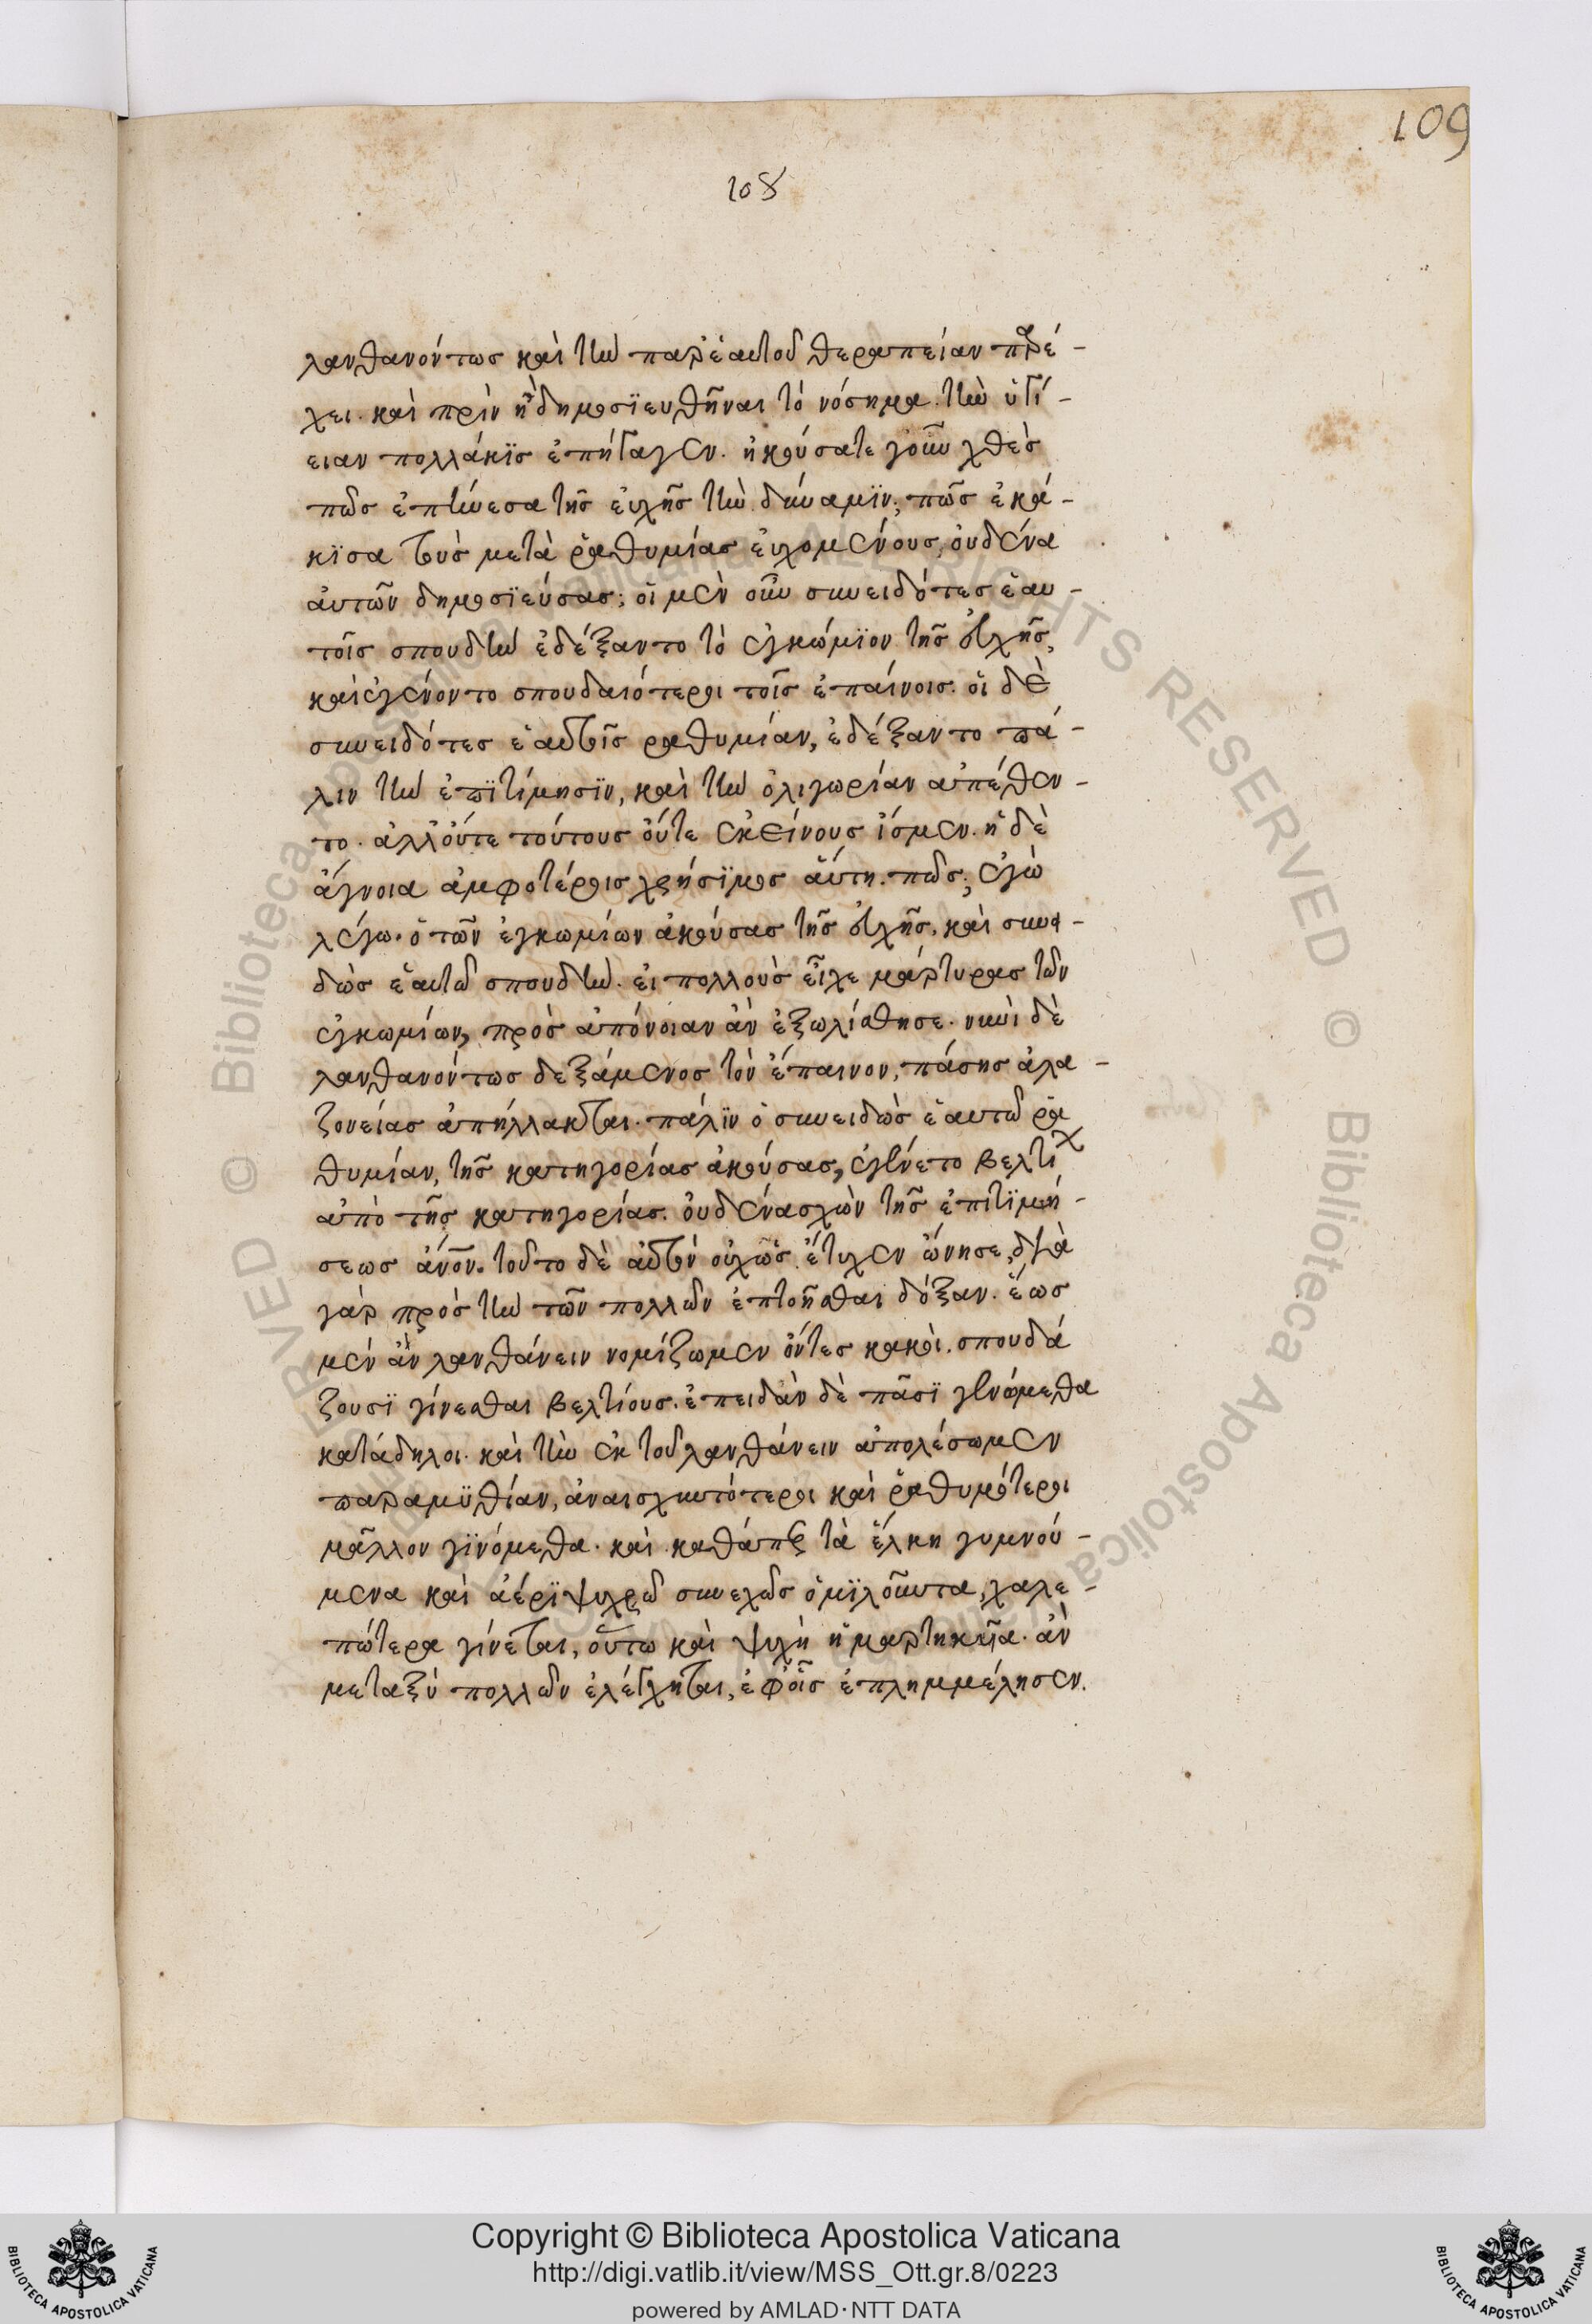 109
108
λανθανόντως καὶ τὴν παρ' ἑαυτοῦ θεραπείαν παρέ-
χει. καὶ πρὶν ἢ δημοσϊευθῆναι τὸ νόσημα. τὴν ὑγί-
ειαν πολλάκϊς ἐπήγαγεν. ἠκούσατε γοῦν χθὲς
πῶς ἐπήνεσα τῆς εὐχῆς τὴν δύναμϊν; πῶς ἐκά-
κϊσα τοὺς μετὰ ῥαθυμίας εὐχομένους, οὐδένα
αὐτῶν δημοσϊεύσας; οἱ μὲν οὖν συνειδότες ἑαυ-
τοῖς σπουδὴν ἐδέξαντο τὸ ἐγκώμϊον τῆς εὐχῆς,
καὶ ἐγένοντο σπουδαιότεροι τοῖς ἐπαίνοις. οἱ δὲ
συνειδότες ἑαυτοῖς ραθυμίαν, ἐδέξαντο πά-
λιν τὴν ἐπϊτίμησϊν, καὶ τὴν ὀλιγωρίαν ἀπέθεν-
το. ἀλλ' οὔτε τούτους οὔτε ἐκείνους ἴσμεν. ἡ δὲ
ἄγνοια ἀμφοτέροις χρήσϊμος αὕτη. πῶς; ἐγὼ
λέγω. ὁ τῶν ἐγκωμίων ἀκούσας τῆς εὐχῆς, καὶ συνει-
δὼς ἑαυτῶ σπουδὴν. εἰ πολλοὺς εἶχε μάρτυρας τῶν
ἐγκωμίων, πρὸς ἀπόνοιαν ἂν ἐξωλίσθησε. νυνὶ δὲ
λανθανόντως δεξάμενος τὸν ἔπαινον, πάσης ἀλα-
ζονείας ἀπήλλακται. πάλϊν ὁ συνειδὼς ἑαυτῶ ῥα
θυμίαν, τῆς κατηγορίας ἀκούσας, ἐγένετο βελτί
ἀπὸ τῆς κατηγορίας. οὐδένα σχὼν τῆς ἐπιτϊμή-
σεως ἄνον. τοῦτο δὲ αὐτὸν οὐχ ὡς ἔτυχεν ὤνησε, διὰ
γὰρ πρὸς τὴν τῶν πολλῶν ἐπτοῆσθαι δόξαν. ἕως
μὲν ἂν λανθάνειν νομίζωμεν ὄντες κακοὶ. σπουδά
ζουσϊ γίνεσθαι βελτίους. ἐπειδὰν δὲ πᾶσϊ γενώμεθα
κατάδηλοι. καὶ τὴν ἐκ τοῦ λανθάνειν ἀπολέσωμεν
παραμϋθίαν, ἀναισχυντότεροι καὶ ῥαθυμότεροι
μᾶλλον γϊνόμεθα. καὶ καθάπερ τὰ ἕλκη γυμνού-
μενα καὶ ἀέρϊ ψυχρῶ συνεχῶς ὁμϊλοῦντα, χαλε-
πώτερα γίνεται, οὕτω καὶ ψυχὴ ἡμαρτηκυῖα. ἂν
μεταξὺ πολλῶν ἐλέγχηται, ἐφ' οἷς ἐπλημμέλησεν.
Copyright © Biblioteca Apostolica Vaticana
http://digi.vatlib.it/view/MSS_Ott.gr.8/0223
powered by AMLAD·NTT DATA